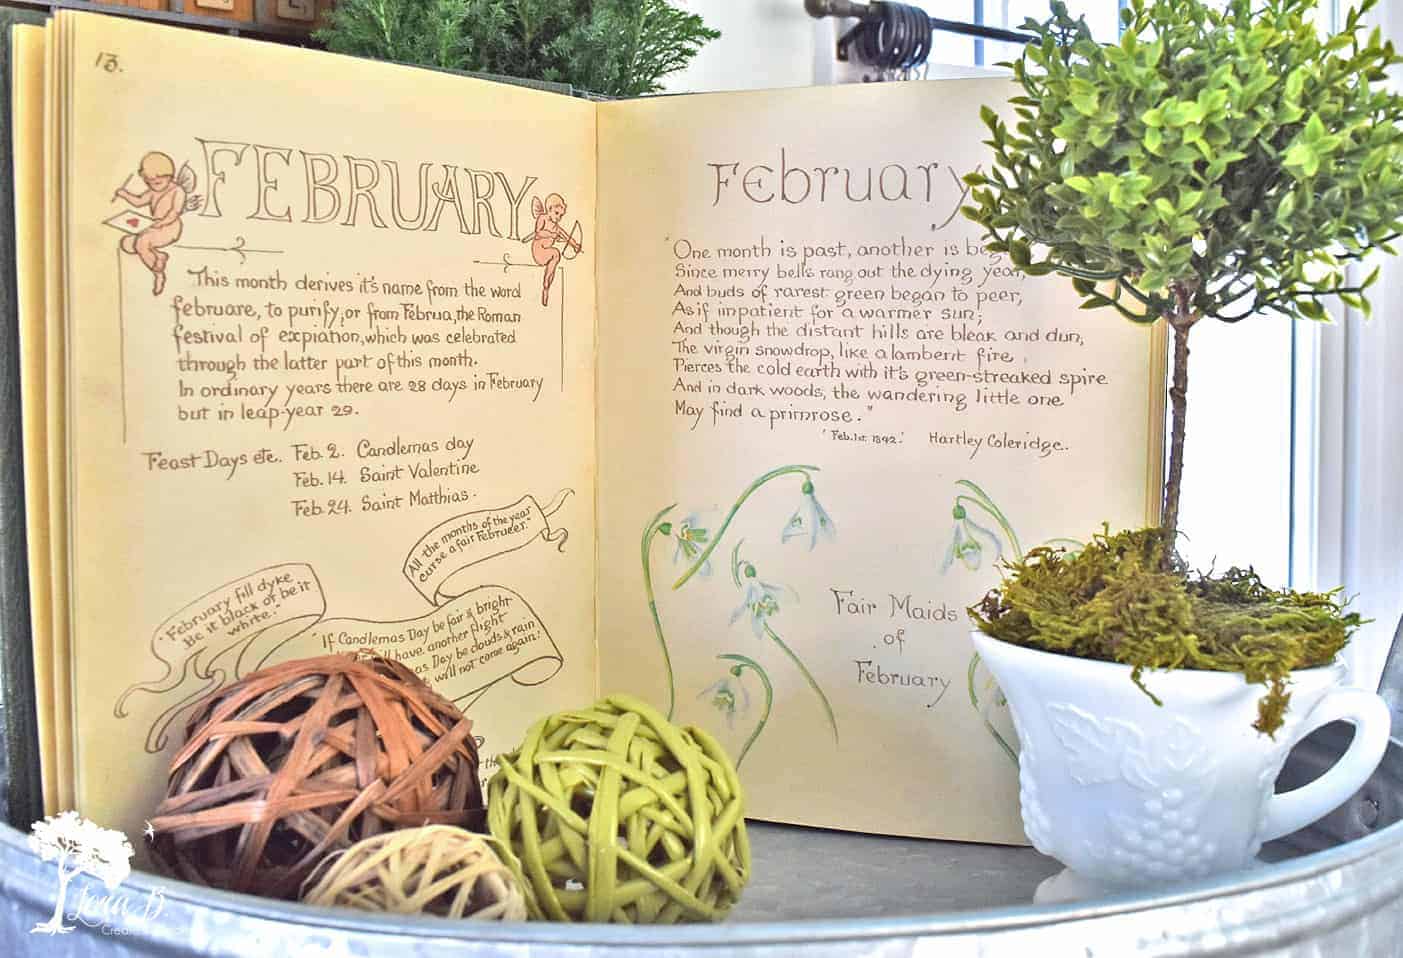 13.
FEBRUARY
This month derives it's name from the word
februare, to purify, or from Februa, the Roman
festival of expiation, which was celebrated
through the latter part of this month.
In ordinary years there are 28 days in February
but in leap-year 29.
Feast Days etc. Feb. 2. Candlemas day
Feb. 14. Saint Valentine
Feb. 24. Saint Matthias.
All the months of the year
curse a fair Februeer."
"February fill dyke
Be it black or be it
white."
"If Candlemas Day be fair & bright
have another flight
Day be clouds & rain
will not come again."
February
"One month is past, another is
Since merry bells rang out the dying year,
And buds of rarest green began to peer,
As if impatient for a warmer sun;
And though the distant hills are bleak and dun,
The virgin snowdrop, like a lambent fire,
Pierces the cold earth with it's green-streaked spire
And in dark woods, the wandering little one
May find a primrose."
'Feb. 1st 1842.' Hartley Coleridge.
Fair Maids
of
February
B.